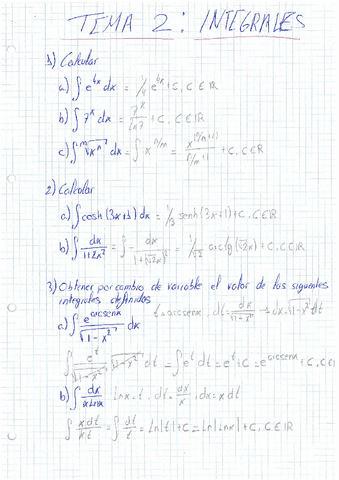 TEMA 2: INTEGRALES
1) Calcular
a) ∫ e^{4x} dx = 1/4 e^{4x} + C, C∈ℝ
b) ∫ 7^x dx = 7^x/ln7 + C, C∈ℝ
c) ∫ ᵐ√(xⁿ) dx = ∫ x^{n/m} = x^{(n/m+1)}/(n/m+1) + C, C∈ℝ
2) Calcular
a) ∫ cosh (3x+1) dx = 1/3 senh (3x+1) + C, C∈ℝ
b) ∫ dx/(1+2x²) = ∫ dx/(1+(√2x)²) = 1/√2 arctg (√2x) + C, C∈ℝ
3) Obtener por cambio de variable el valor de las siguientes
integrales definidas
a) ∫ e^{arcsenx}/√(1-x²) dx t = arcsenx, dt = dx/√(1-x²) → dx = √(1-x²) dt
∫ e^t/√(1-x²) √(1-x²) dt = ∫ e^t dt = e^t + C = e^{arcsenx} + C, C∈ℝ
b) ∫ dx/(x lnx) lnx = t, dt = dx/x, dx = x dt
∫ x dt/(x t) = ∫ dt/t = ln|t| + C = ln|lnx| + C, C∈ℝ